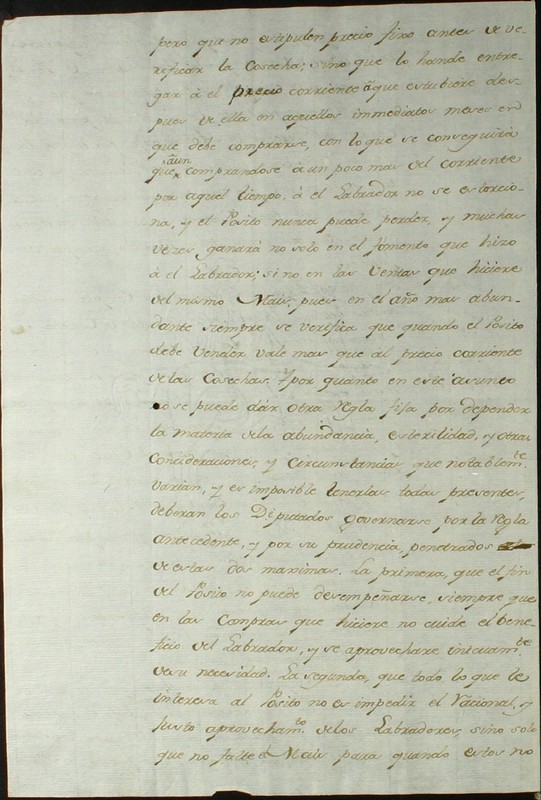 pero que no estipulen precio fixo antes de ve-
rificar la Cosecha; sino que lo hande entre-
gar à el precio corriente âque estubiere des-
pues de ella en aquellos immediatos meses en
que debe comprarse, con loque se conseguirá
que aun comprandose à un poco mas del corriente
por aquel tiempo, à el Labrador no se estorcio-
na, y el Posito nunca puede perder, y muchas
vezes ganará no solo en el fomento que hizo
à el Labrador; si no en las Ventas que hiciere
del mismo Mais, pues en el año mas abun-
dante siempre se verifica que quando el Posito
debe Vender vale mas que al precio corriente
de las Cosechas. Y por quanto en este asunto
nose puede dár otra regla fija por depender
la materia dela abundancia, esterilidad, y otras
Concideraciones, y Circunstancias, que notablemte.
varian, y es imposible tenerlas todas presentes,
deberan los Diputados governarse por la regla
antecedente, y por su prudencia, penetrados
de estas dos maximas. La primera, que el fin
del Posito no puede desempeñarse, siempre que
en las Compras que hiciere no cuide el bene-
ficio del Labrador, y se aprovechare inicuamte.
desu necesidad. La segunda, que todo lo que le
interesa al Posito no es impedir el racional, y
justo aprovechamto. delos Labradores, sino solo
que no falte el Mais para quando estos no